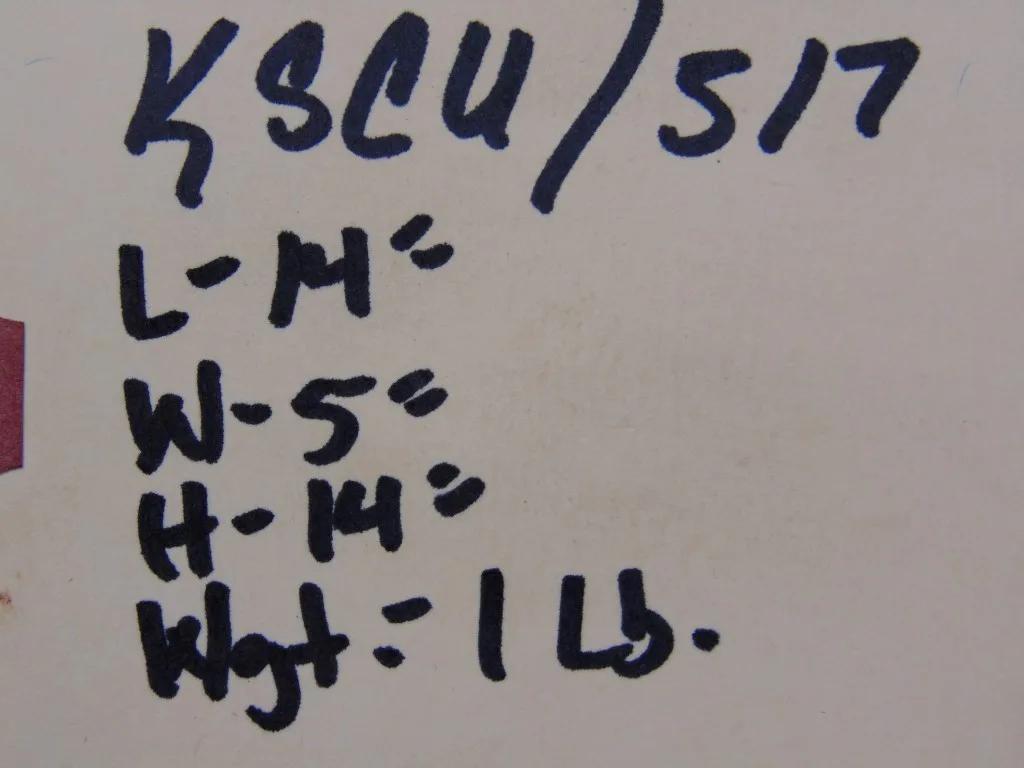 KSCU/517
L- 14"
W- 5"
H- 14"
Wgt= 1 Lb.